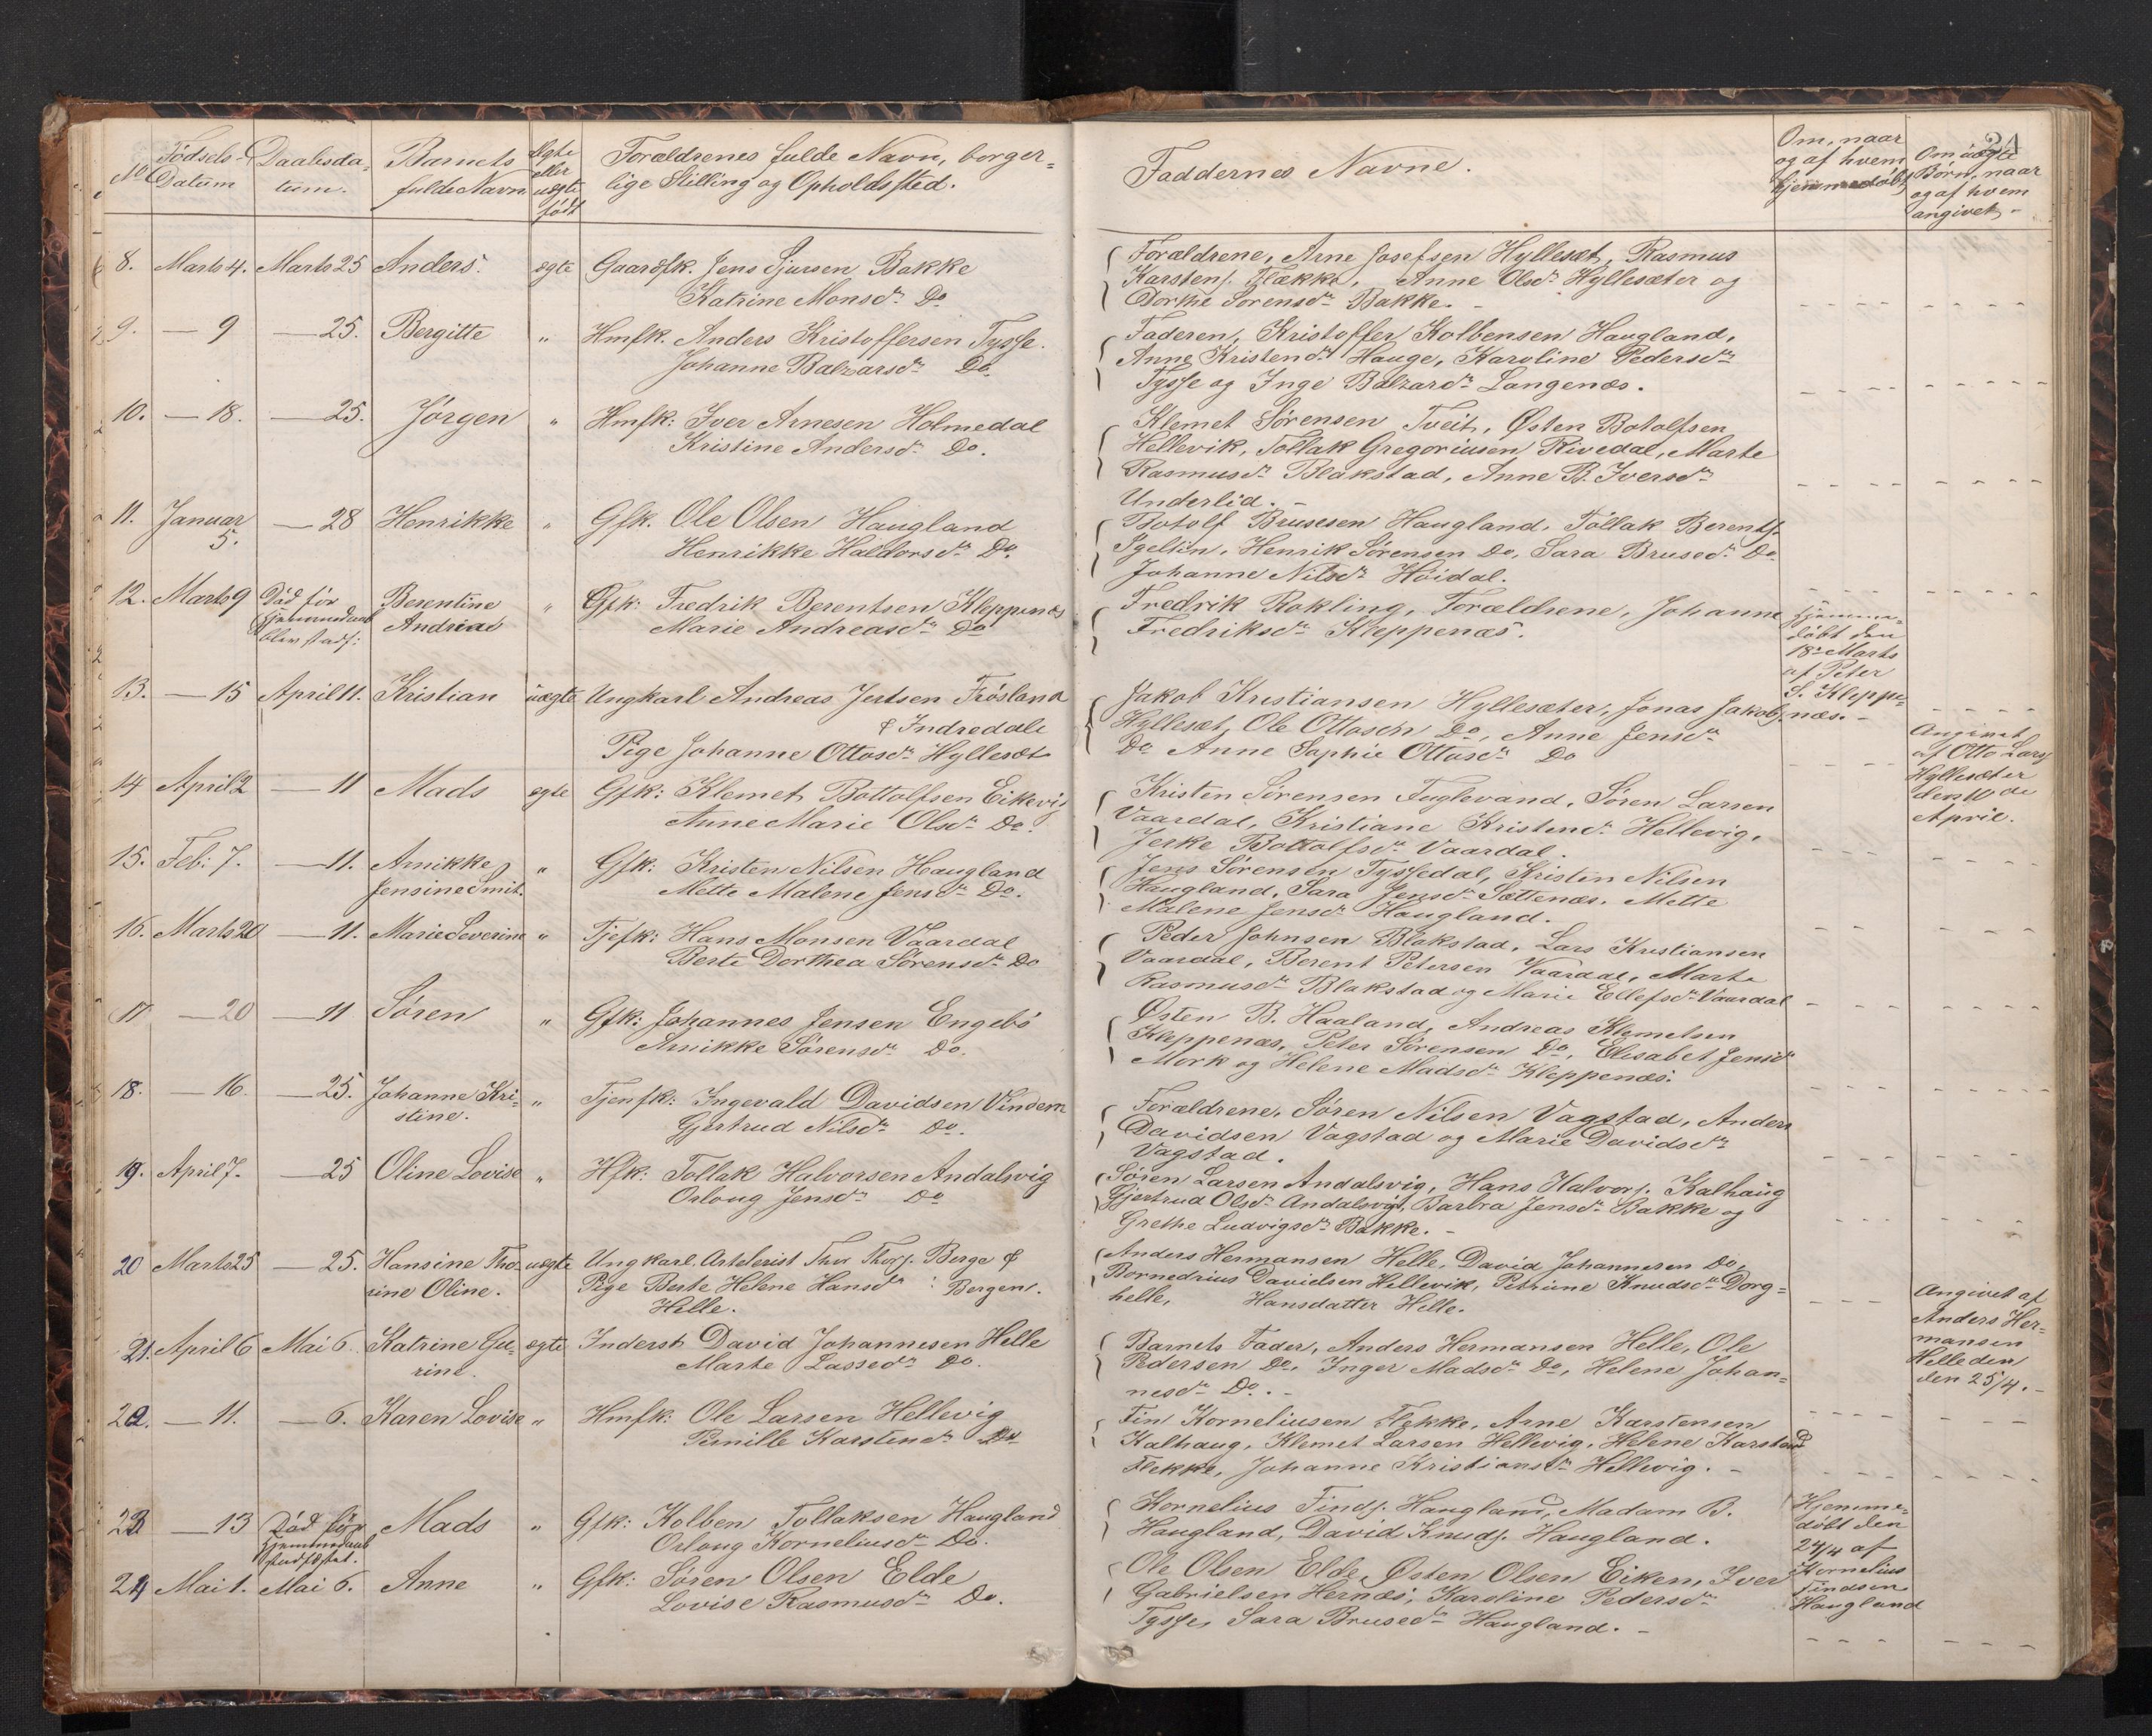 No Fødsels- Datum
Daabsda- tum.
Barnets fulde Navn
Ægte eller uægte født
Forældrenes fulde Navn, borger= lige Stilling og Opholdssted.
Faddernes Navne.
Om, naar og af hvem hjemmedøbt
Om uægte Børn, naar og af hvem angivet.
8. Marts 4. Marts 25 Anders. ægte Gaardfk. Jens Sjursen Bakke
Katrine Monsdr Do
Forældrene, Arne Josefsen Hyllesæt, Rasmus
Karstens. Flække, Anne Olsdr Hyllesæter og
Dorthe Sørensdr Bakke.
9. — 9 — 25. Bergitte " Hmfk. Anders Kristoffersen Tysse.
Johanne Balzarsdr Do
Faderen, Kristoffer Kolbensen Haugland,
Anne Kristendr Hauge, Karoline Pedersdr
Tysse og Inge Balzardr Langenæs.
10. — 18. — 25. Jørgen " Hmfk: Iver Arnesen Holmedal
Kristine Andersdr Do.
Klemet Sørensen Tveit, Østen Botolfsen
Hellevik, Tollak Gregoriusen Rivedal, Marte
Rasmusdr Blakstad, Anne B. Iversdr
Underlid.
11. Januar 5. — 28 Henrikke " Gfk. Ole Olsen Haugland
Henrikke Haldorsdr Do.
Botolf Brusesen Haugland, Tollak Berents.
Igelien, Henrik Sørensen Do, Sara Brusedr Do
Johanne Nilsdr Høidal.
12. Marts 9 Død før hjemmedaab blev stadf: Berentine Andrea " Gfk: Fredrik Berentsen Kleppenæs
Marie Andreasdr Do
Fredrik Rokling, Forældrene, Johanne
Fredriksdr Kleppenæs.
Hjemme- døbt den 18de Marts af Peter S. Kleppe- næs.
13. — 15 April 11. Kristian uægte Ungkarl Andreas Jertsen Frøsland
& Indredale
Pige Johanne Ottosdr Hyllesæt
Jakob Kristiansen Hyllesæter, Jonas Jakobs.
Hyllesæt, Ole Ottosen Do, Anne Jensdr
Do Anne Sophie Ottosdr Do
Angivet af Otto Lars. Hyllesæter den 10de April.
14 April 2 — 11 Mads ægte Gfk: Klemet Bottolfsen Eikevig
Anne Marie Olsdr Do.
Kristen Sørensen Fuglevand, Søren Larsen
Vaardal, Kristiane Kristendr Hellevig,
Jerke Bottolfsdr Vaardal.
15. Feb: 7. — 11. Anikke Jensine Smit. " Gfk: Kristen Nilsen Haugland
Mette Malene Jensdr Do.
Jens Sørensen Tyssedal, Kristen Nilsen
Haugland, Sara Jensdr Sættenæs. Mette
Malene Jensdr Haugland.
16. Marts 20 — 11. Marie Severine " Tjefk: Hans Monsen Vaardal
Berte Dorthea Sørensdr Do
Peder Johnsen Blakstad, Lars Kristiansen
Vaardal, Berent Petersen Vaardal, Marte
Rasmusdr Blakstad og Marie Ellefsdr Vaardal
17 — 20 — 11 Søren " Gfk: Johannes Jensen Engebø
Anikke Sørensdr Do.
Østen B. Haaland, Andreas Klemetsen
Kleppenæs, Peter Sørensen Do, Elisabet Jensdr
Mork og Helene Madsdr Kleppenæs.
18. — 16. — 25. Johanne Kri- stine. " Tjenfk: Ingevald Davidsen Vindem
Gjertrud Nilsdr Do.
Forældrene, Søren Nilsen Vagstad, Anders
Davidsen Vagstad og Marie Davidsdr
Vagstad.
19. April 7. — 25 Oline Lovise " Hfk: Tollak Halvorsen Andalsvig
Orloug Jensdr Do
Søren Larsen Andalsvig, Hans Halvors. Kalhaug
Gjertrud Olsdr Andalsvig, Barbra Jensdr Bakke og
Grethe Ludvigsdr Bakke.
20 Marts 25 — 25. Hansine Tho- rine Oline. uægte Ungkarl. Artelerist Thor Thors. Berge &
Pige Berte Helene Hansdr : Bergen.
Helle.
Anders Hermansen Helle, David Johannesen Do,
Bornedrius Davidsen Hellevik, Petrine Knudsdr Dorg=
helle, Hansdatter Helle.
Angivet af Anders Her- mansen Helle den den 25/4.
21. April 6 Mai 6. Katrine Gu- rine. ægte Inderst David Johannesen Helle
Marte Lassedr Do.
Barnets Fader, Anders Hermansen Helle, Ole
Pedersen Do, Inger Madsdr Do, Helene Johan-
nesdr Do.
22. — 11. — 6. Karen Lovise " Hmfk: Ole Larsen Hellevig
Pernille Karstendr Do
Fin Korneliusen Flekke, Arne Karstensen
Kalhaug, Klemet Larsen Hellevig, Helene Karstend
Flekke, Johanne Kristiansdr Hellevig.
23 — 13 Død før hjemmedaab stadfæstet. Mads " Gfk: Kolben Tollaksen Haugland
Orloug Korneliusdr Do.
Kornelius Finds. Haugland, Madam B.
Haugland, David Knuds. Haugland.
Hjemme- døbt den 24/4 af Kornelius Findsen Haugland
24 Mai 1. Mai 6. Anne " Gfk: Søren Olsen Elde
Lovise Rasmusdr Do.
Ole Olsen Elde, Østen Olsen Eiken, Iver
Gabrielsen Hernæs, Karoline Pedersdr
Tysse, Sara Brusedr Haugland.